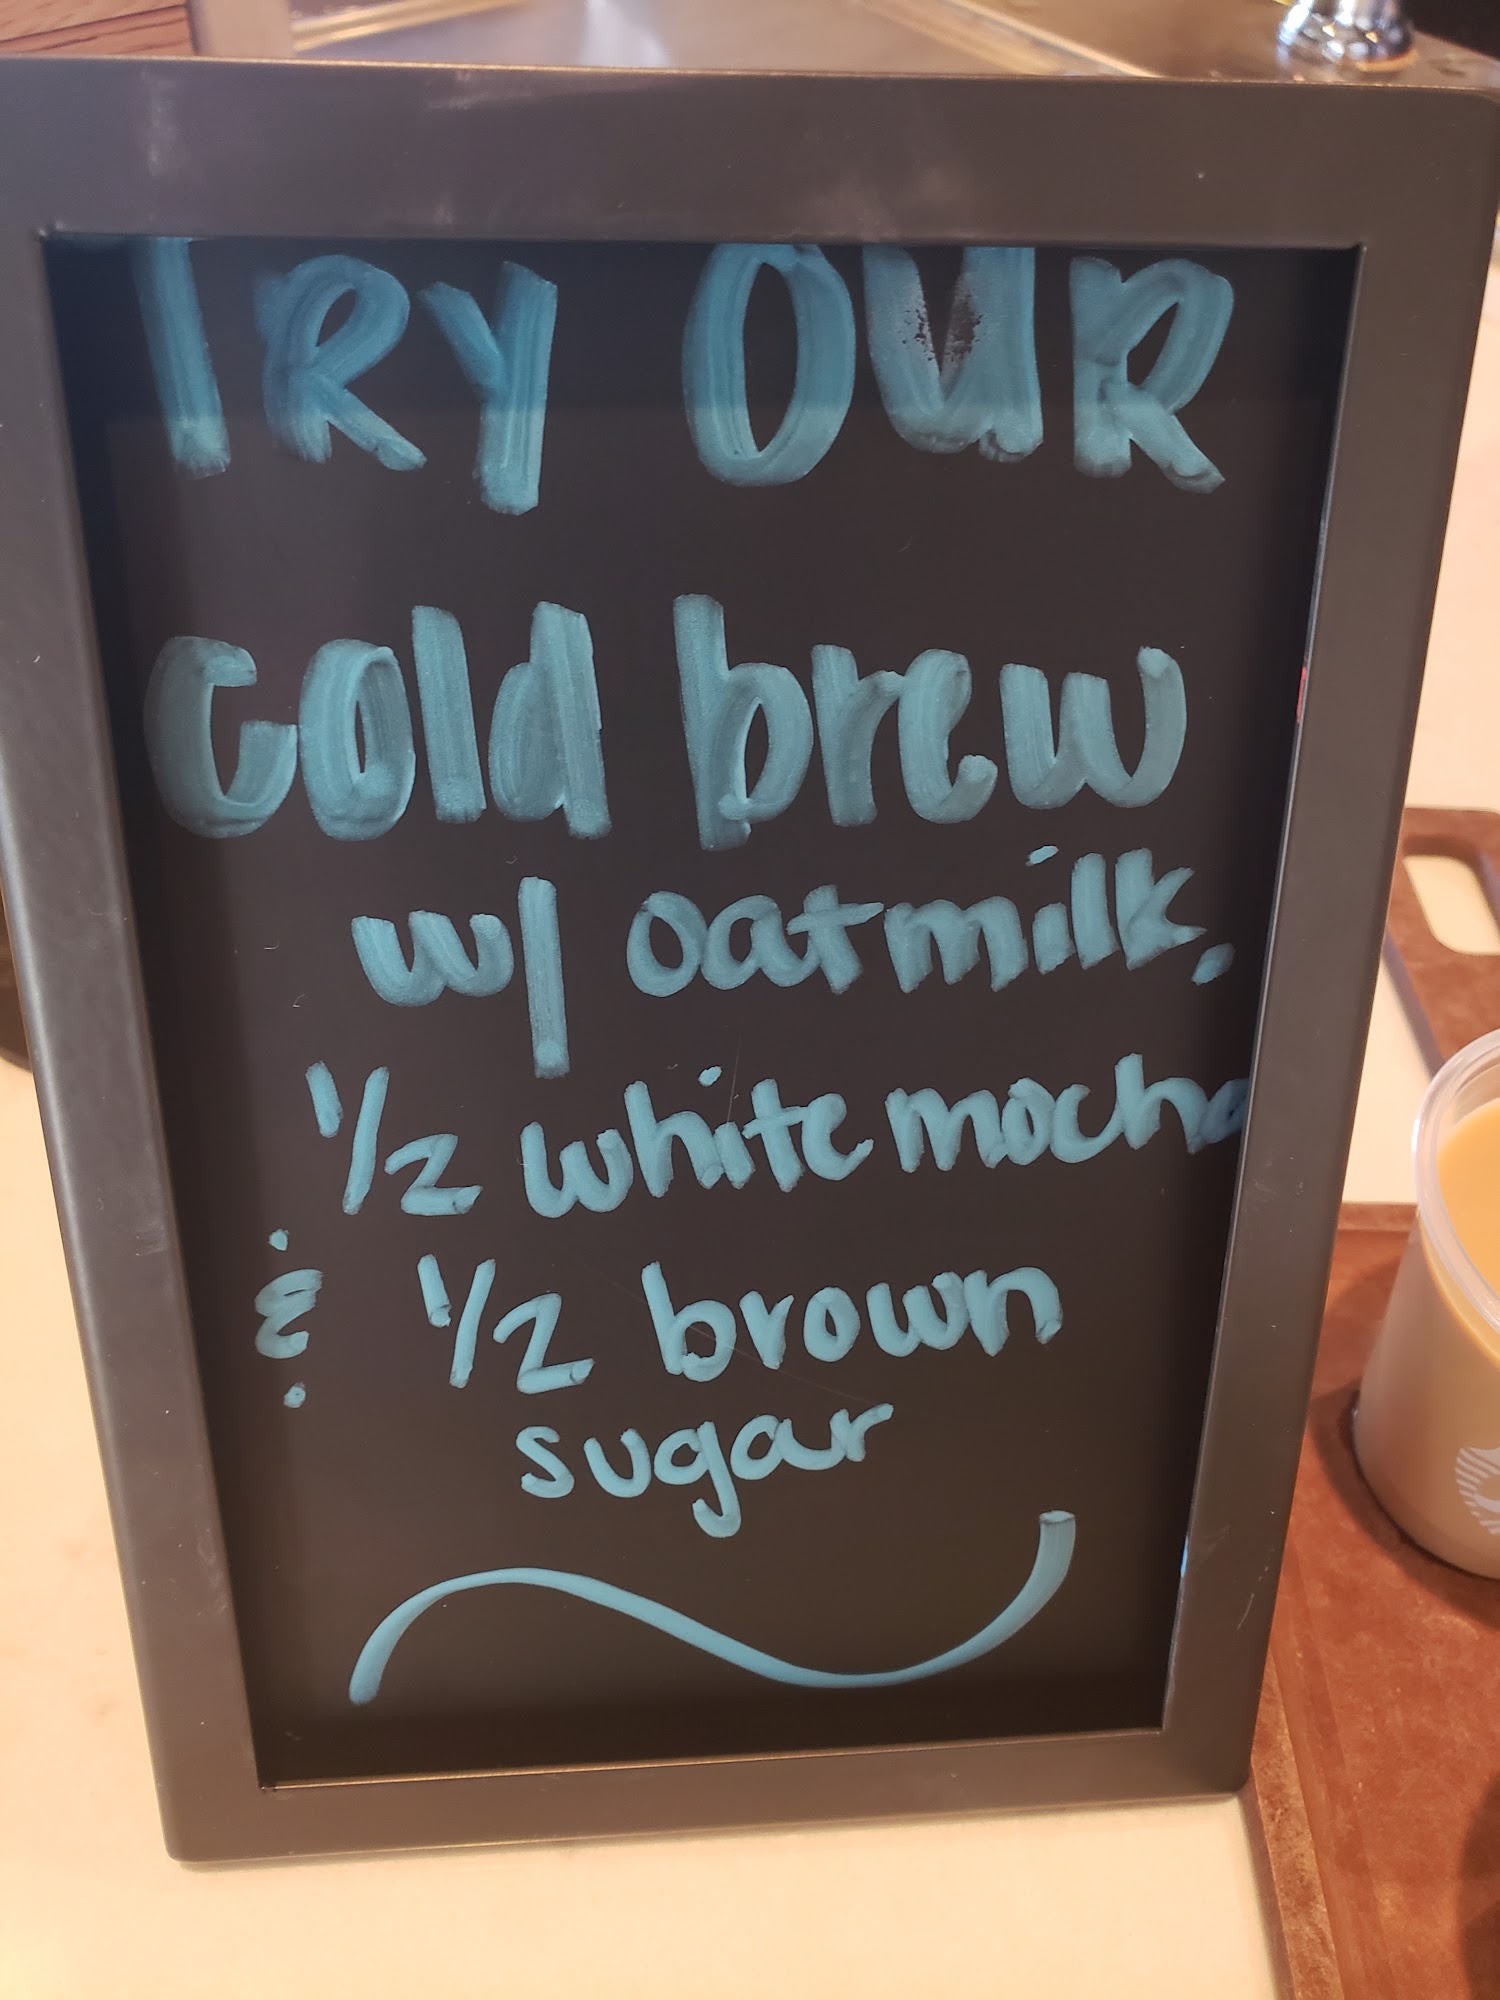 TRY OUR
cold brew
w/ oatmilk,
1/2 white mocha
& 1/2 brown
sugar